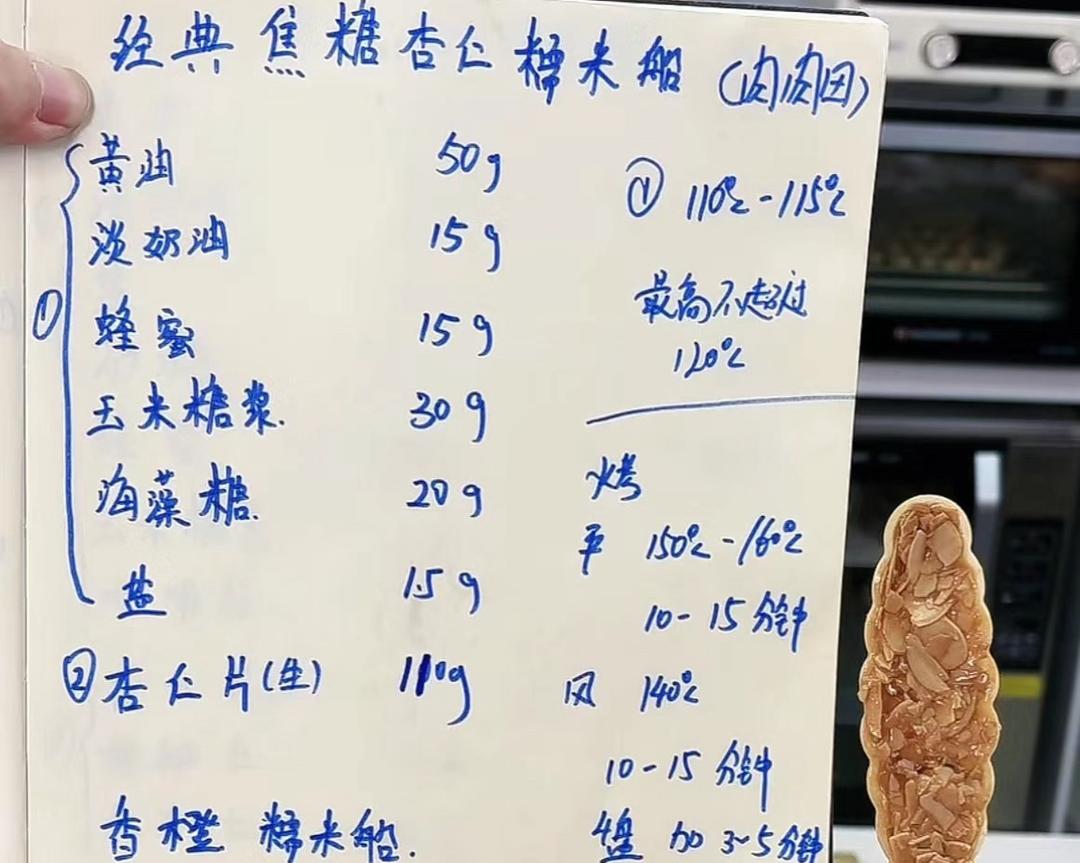 经典焦糖杏仁糯米船(肉肉田)
黄油 50g
淡奶油 15g
① 蜂蜜 15g
玉米糖浆. 30g
海藻糖. 20g
盐 1.5g
②杏仁片(生) 110g
香橙 糯米船.
① 110℃-115℃
最高不超过
120℃
烤
平 150℃-160℃
10-15分钟
风 140℃
10-15 分钟
4盘 加 3~5分钟